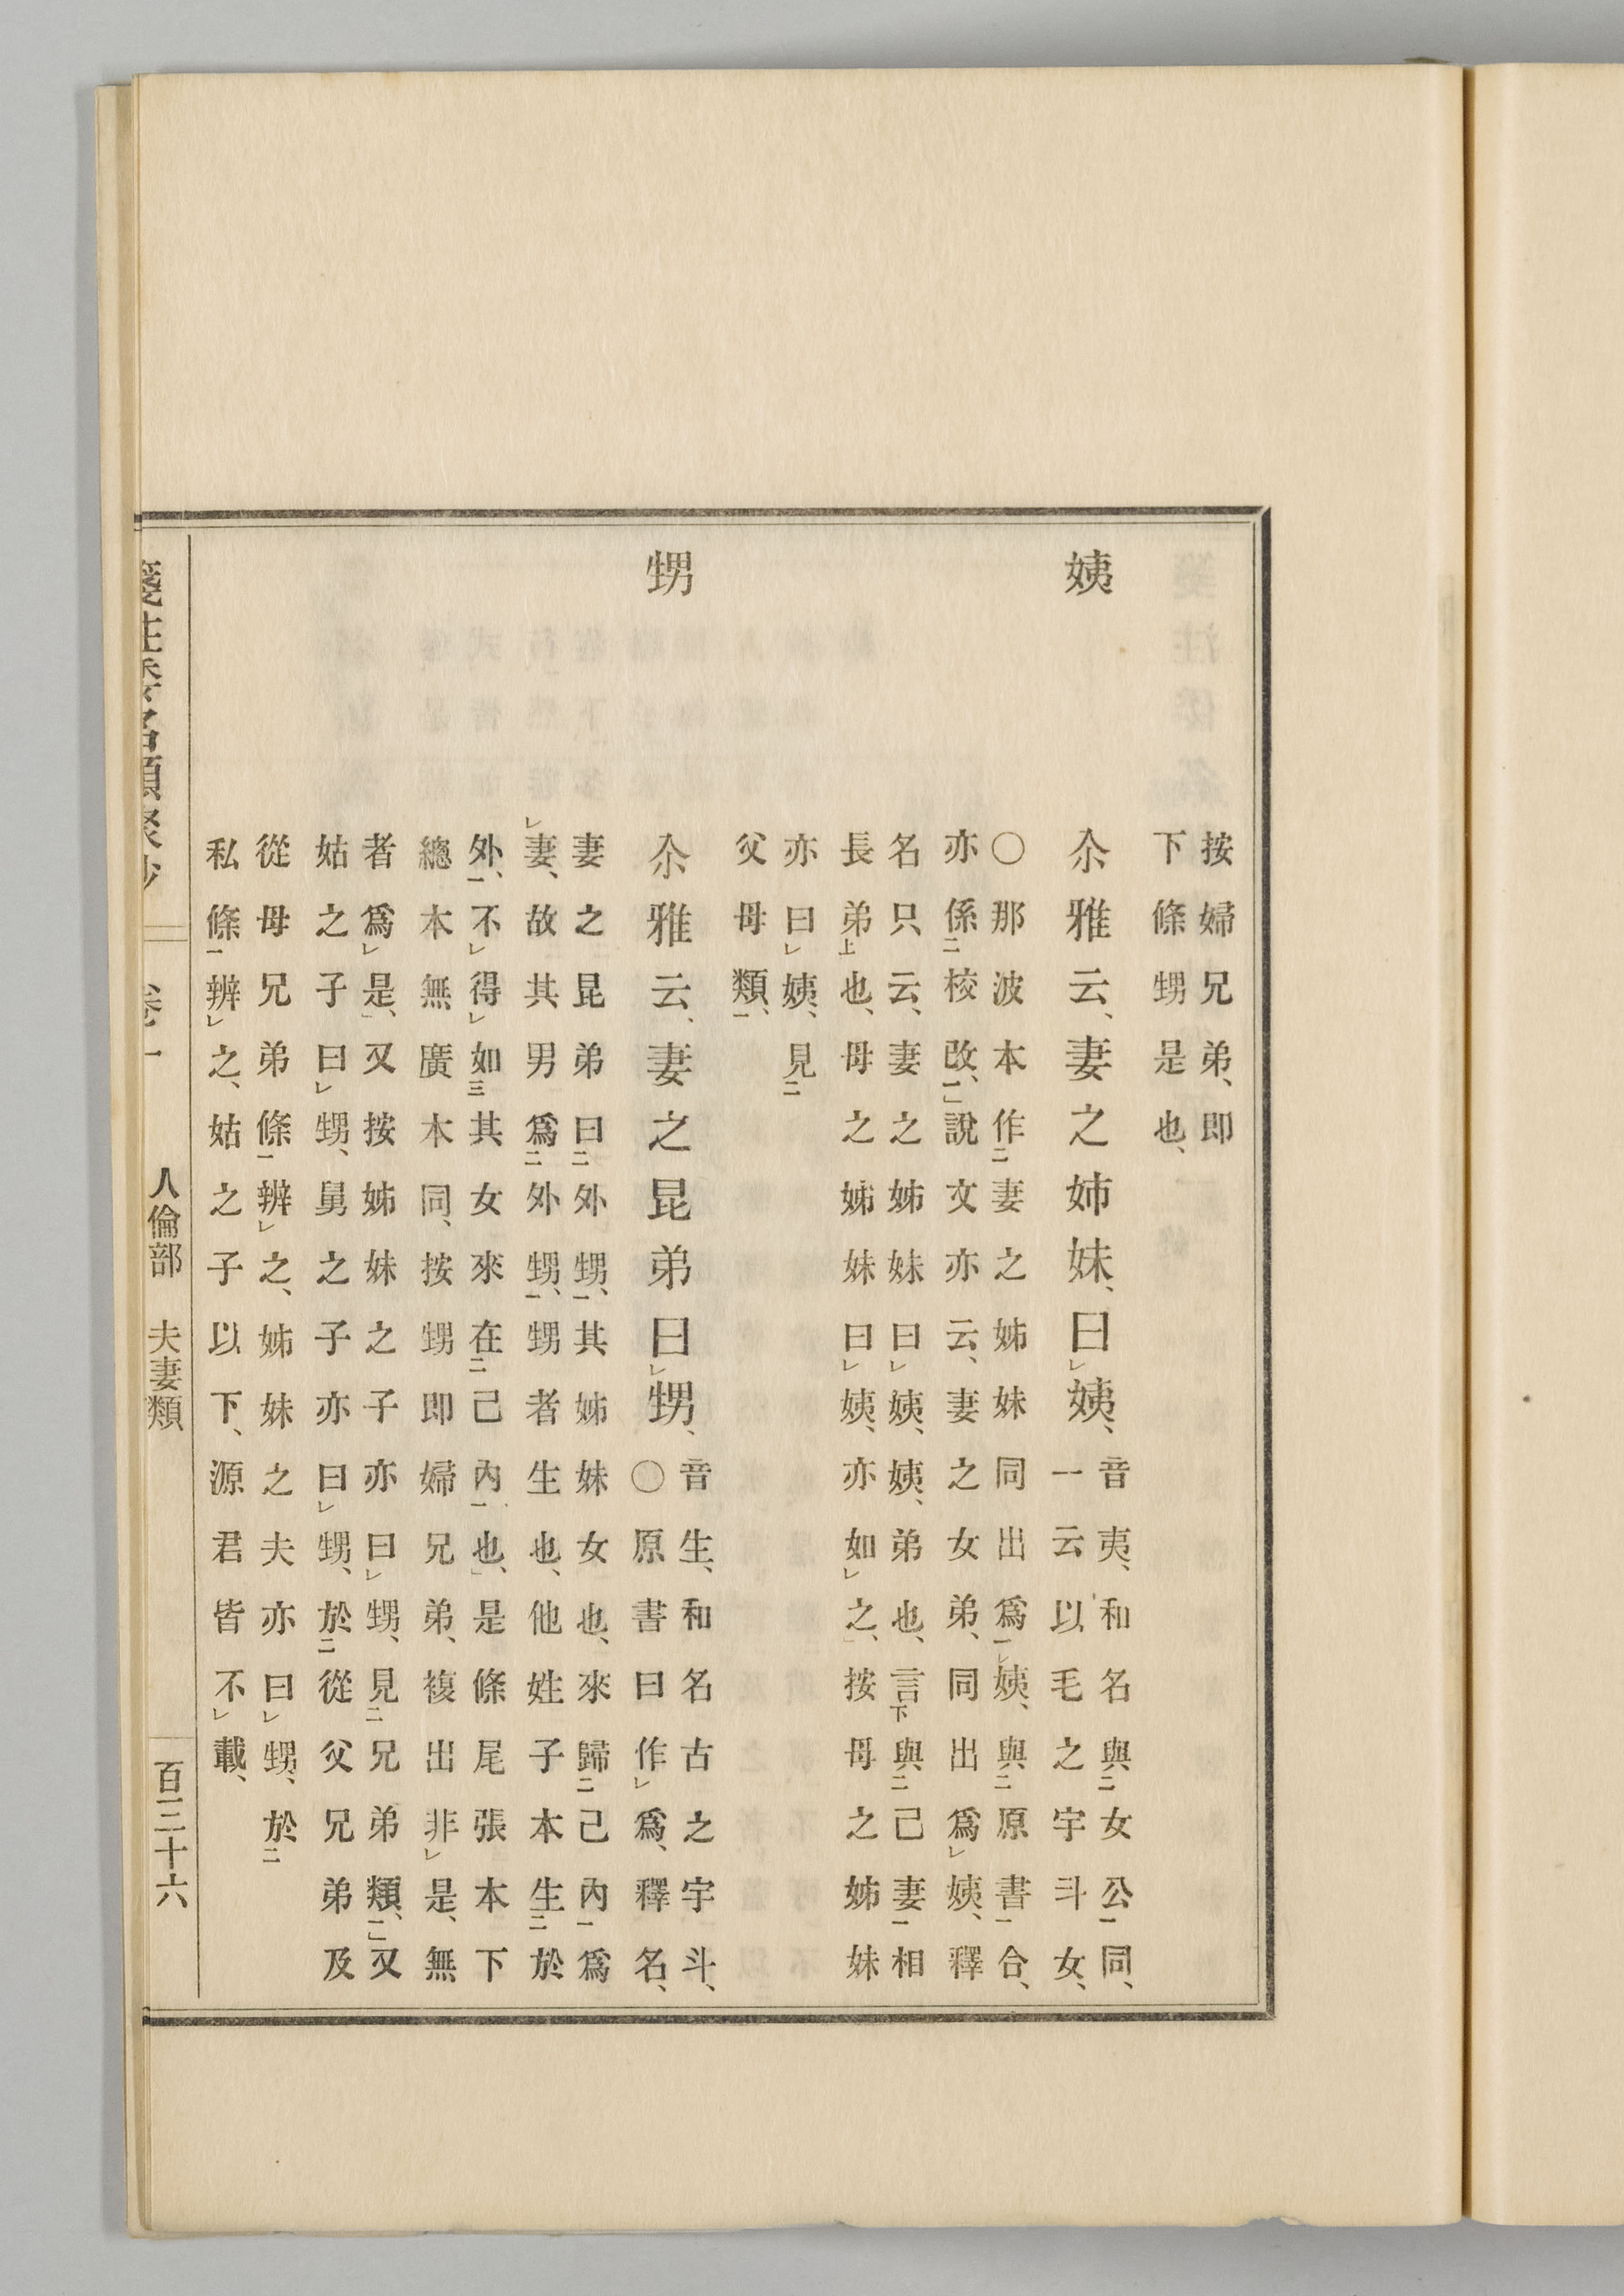 按婦兄弟、卽
下條甥是也、
姨
尒雅云、妻之姉妹、曰㆑姨、
音夷、和名與㆓女公㆒同、
一云以毛之宇斗女、
〇那波本作㆓妻之姊妹同出爲㆒㆑姨、與㆓原書㆒合、
亦係㆓校改㆒、」說文亦云、妻之女弟、同出爲㆑姨、釋
名只云、妻之姊妹曰㆑姨、姨、弟也、言㆘與㆓己妻㆒相
長弟㆖也、母之姊妹曰㆑姨、亦如㆑之、」按母之姊妹
亦曰㆑姨、見㆓
父母類㆒、
甥
尒雅云、妻之昆弟曰㆑甥、
音生、和名古之宇斗、
〇原書曰作㆑爲、釋名、
妻之昆弟曰㆓外甥㆒、其姊妹女也、來歸㆓己內㆒爲
㆑妻、故其男爲㆓外甥㆒、甥者生也、他姓子本生㆓於
外㆒、不㆑得㆑如㆘其女來在㆓己內㆒也、」是條尾張本下
總本無廣本同、按甥卽婦兄弟、複出非㆑是、無
者爲㆑是、」又按姊妹之子亦曰㆑甥、見㆓兄弟類㆒、」又
姑之子曰㆑甥、舅之子亦曰㆑甥、於㆓從父兄弟及
從母兄弟條㆒辨㆑之、姊妹之夫亦曰㆑甥、於㆓
私條㆒辨㆑之、姑之子以下、源君皆不㆑載、
人倫部　夫妻類　百三十六